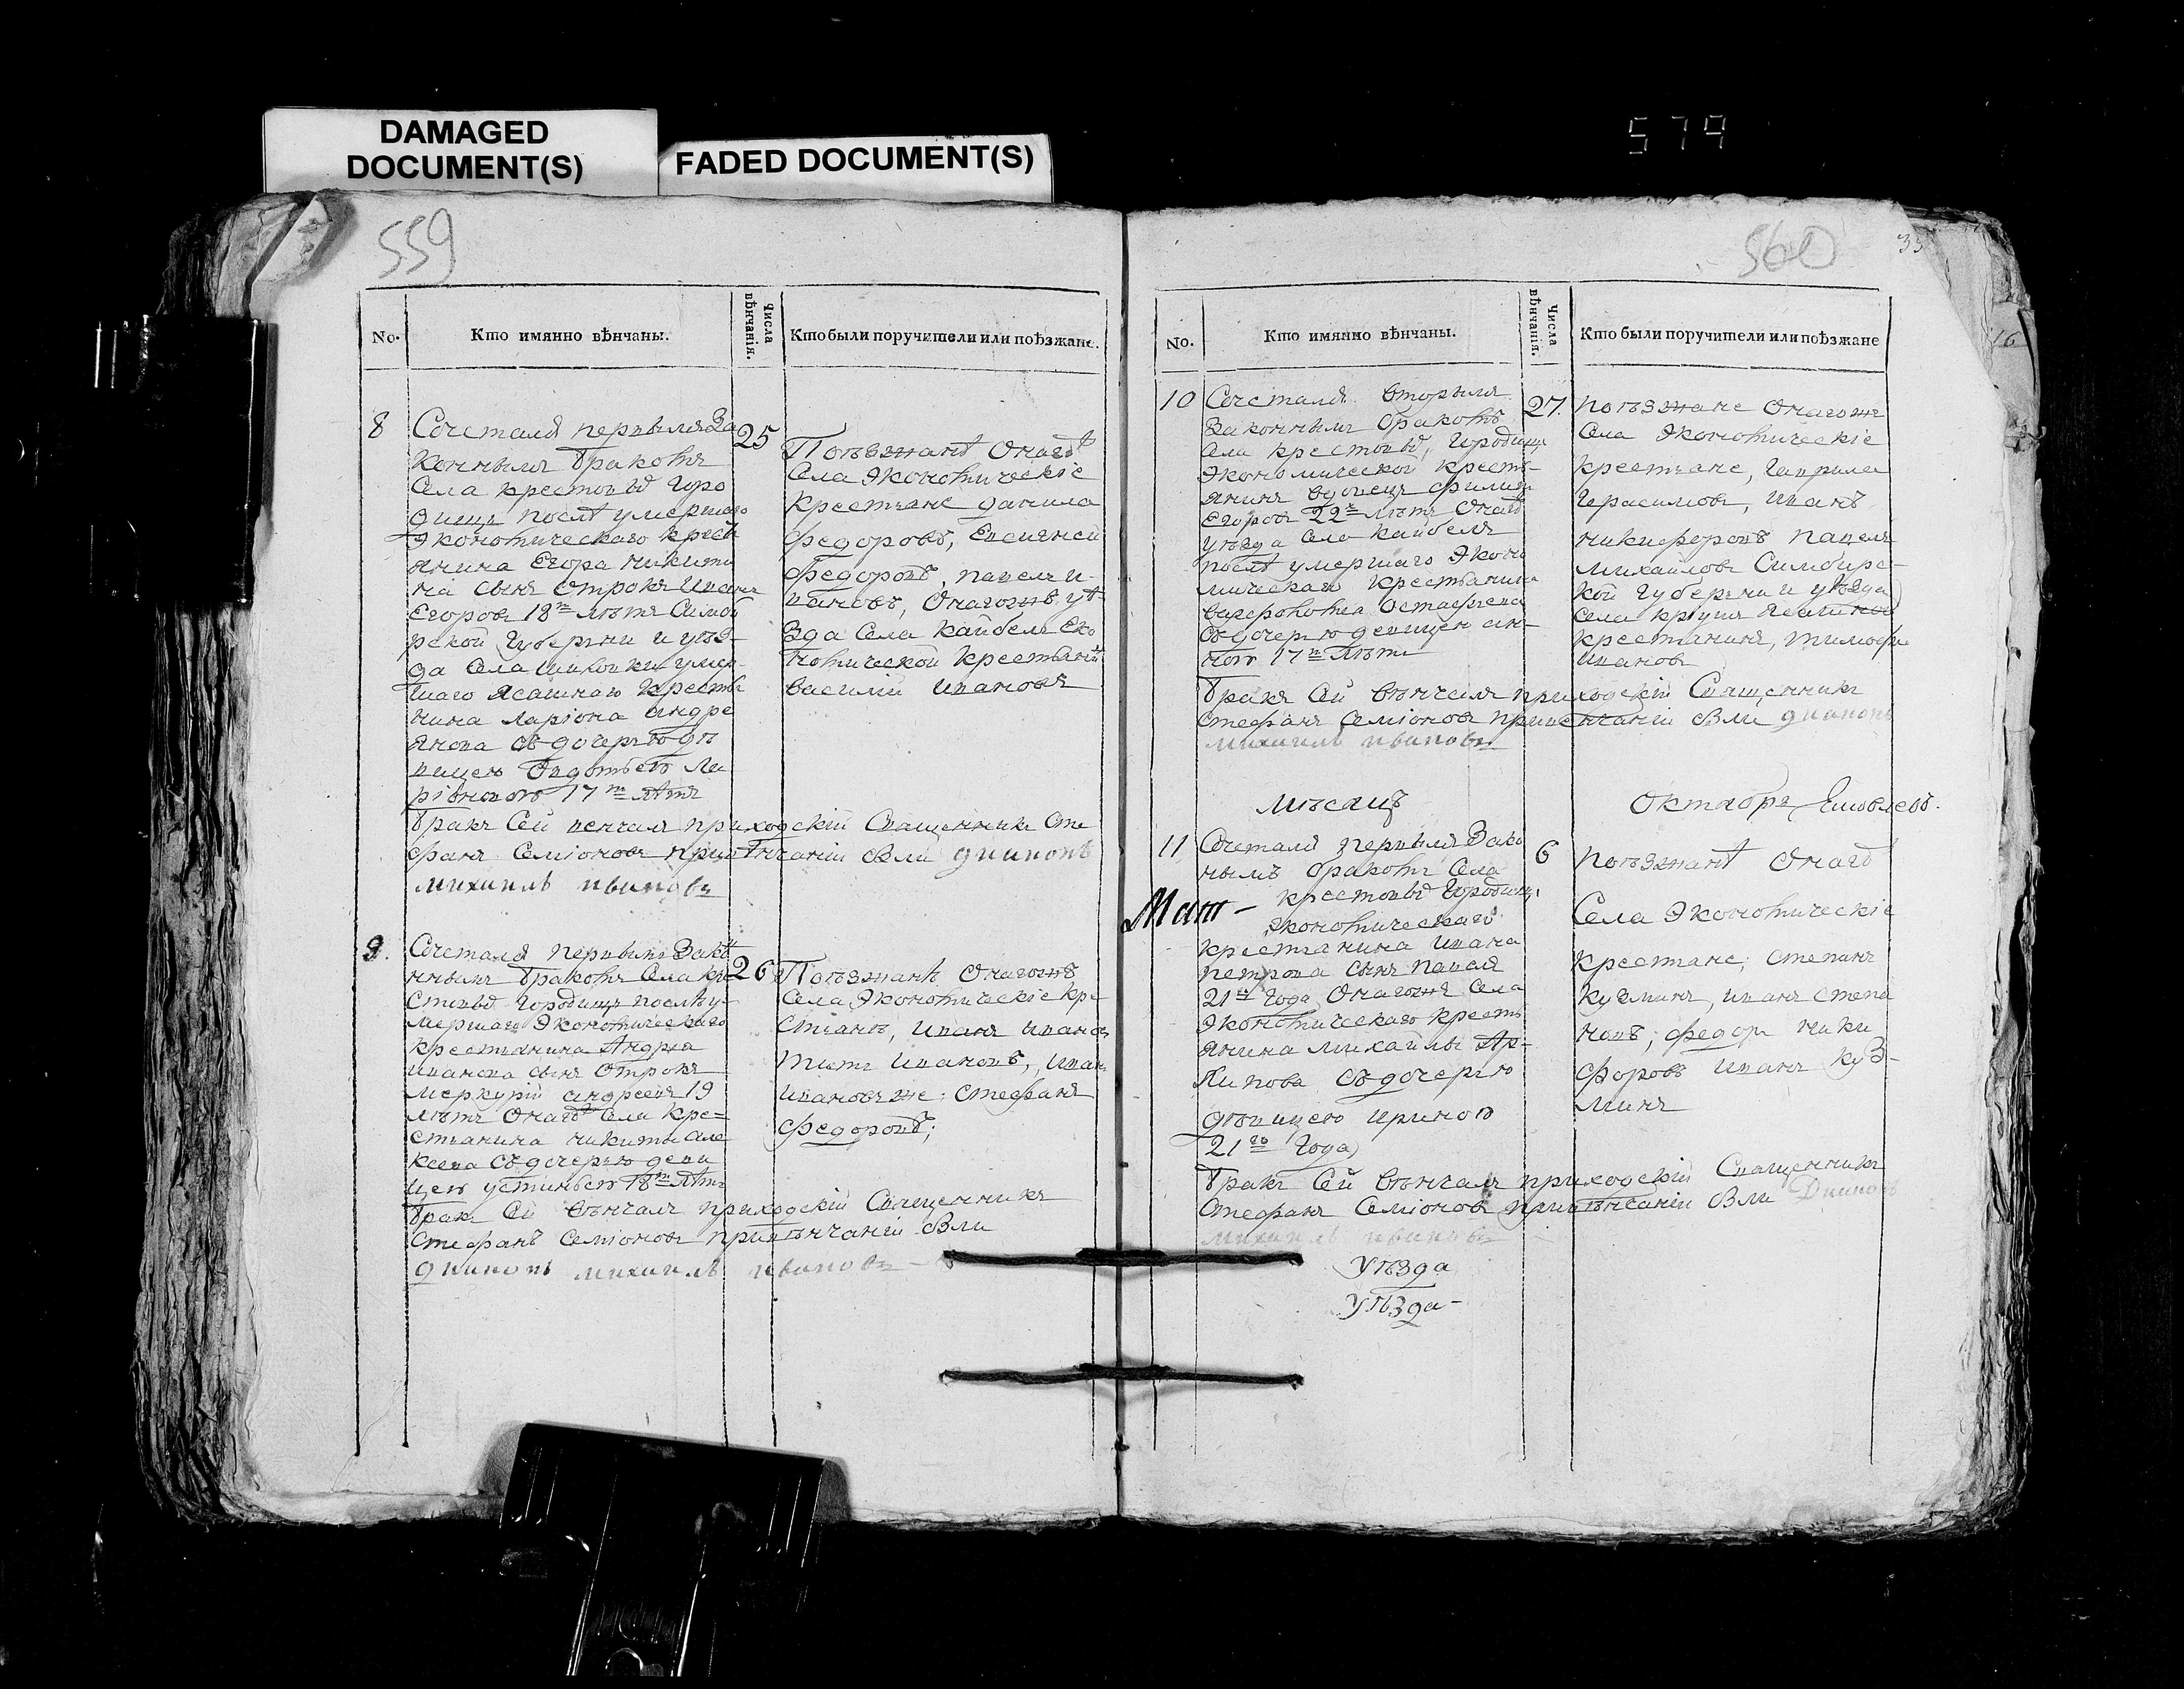 DAMAGED
DOCUMENT(S)
FADED DOCUMENT(S)
579
559
No.
Кто имянно вѣнчаны.
Числа вѣнчанія.
Кто были поручители или поѣзжане.
8
Сочетался первымъ За
коннымъ бракомъ
Села крестовыхъ Горо
дищъ послѣ умершаго
Экономическаго кресть
янина Егора никити
на сынъ отрокъ Иванъ
Егоровъ 18ти лѣтъ Симбир
рской Губерніи и уѣз-
да Села умер-
шаго Ясашнаго кресть
нина ларіона андре
янова съ дочерью дѣ
вицею Авдотьею Ла
ріоновою 17ти лѣтъ
25
Поѣзжанѣ Онагоже
Села Экономическіе
крестьяне данила
федоровъ, Евсигней
федоровъ, павелъ и-
вановъ, Онагожъ уѣ-
зда Села Кайбелъ Эко
номической крестьянин
василій ивановъ
бракъ Сей венчалъ приходскій Священникъ Сте
фанъ Семіоновъ при вѣнчаніи были диаконъ
михаилъ ивановъ
9.
Сочетался первымъ Зако
ннымъ бракомъ Села кре
стовыхъ Городищъ послѣ у-
мершаго Экономическаго
крестьянина Андрея
иванова сынъ отрокъ
меркурій андреевъ 19
лѣтъ Онагожъ Села кре=
стьянина никиты але
ксева съ дочерью деви
цею устиньею 18ти лѣтъ
26
Поѣзжанѣ Онагожъ
Села Экономическіе кре
стьянѣ, иванъ ивановъ
титъ ивановъ, иванъ
ивановъ же, стефанъ
федоровъ;
бракъ Сей вѣнчалъ приходскій Священникъ
Стефанъ Семіоновъ при вѣнчаніи были
диаконъ михаилъ ивановъ
560
35
16
No.
Кто имянно вѣнчаны.
Числа вѣнчанія.
Кто были поручители или поѣзжане
10
Сочетался вторымъ
Законнымъ бракомъ
Села крестовыхъ Городищъ
Экономической кресть-
янинъ вдовецъ филипъ
Егоровъ 22х лѣтъ Онагожъ
уѣзда Села Кайбелъ
послѣ умершаго Эконо
мическаго крестьянина
остафьева
съ дочерью девицею ан-
ною 17ти лѣтъ
27.
поѣзжане Онагожъ
Села Экономическіе
крестьяне, Гаврила
Герасимовъ, иванъ
никифоровъ павелъ
михайловъ Симбирс-
кой Губерніи и уѣзда
села
крестьянинъ, тимофей
ивановъ
бракъ Сей вѣнчалъ приходскій Священникъ
Стефанъ Семіоновъ при венчаніи были диаконъ
михаилъ ивановъ
мѣсацъ
Октябрь
11
Сочетался первымъ Зако
нымъ бракомъ Села
крестовыхъ Городищъ
Экономическаго
крестьянина ивана
петрова сынъ павелъ
21го Года Онагожъ Села
Экономическаго кресть
янина михайлы Ар-
хипова съ дочерью
дѣвицею ириною
21го Года
6
поѣзжанѣ Онагожъ
Села Экономическіе
крестьяне, степанъ
кузминъ, иванъ степа
новъ, федоръ ники
форовъ иванъ куз-
минъ
бракъ Сей вѣнчалъ приходскій Священникъ
Стефанъ Семіоновъ при вѣнчаніи были Диаконъ
михаилъ ивановъ
уѣзда
уѣзда-